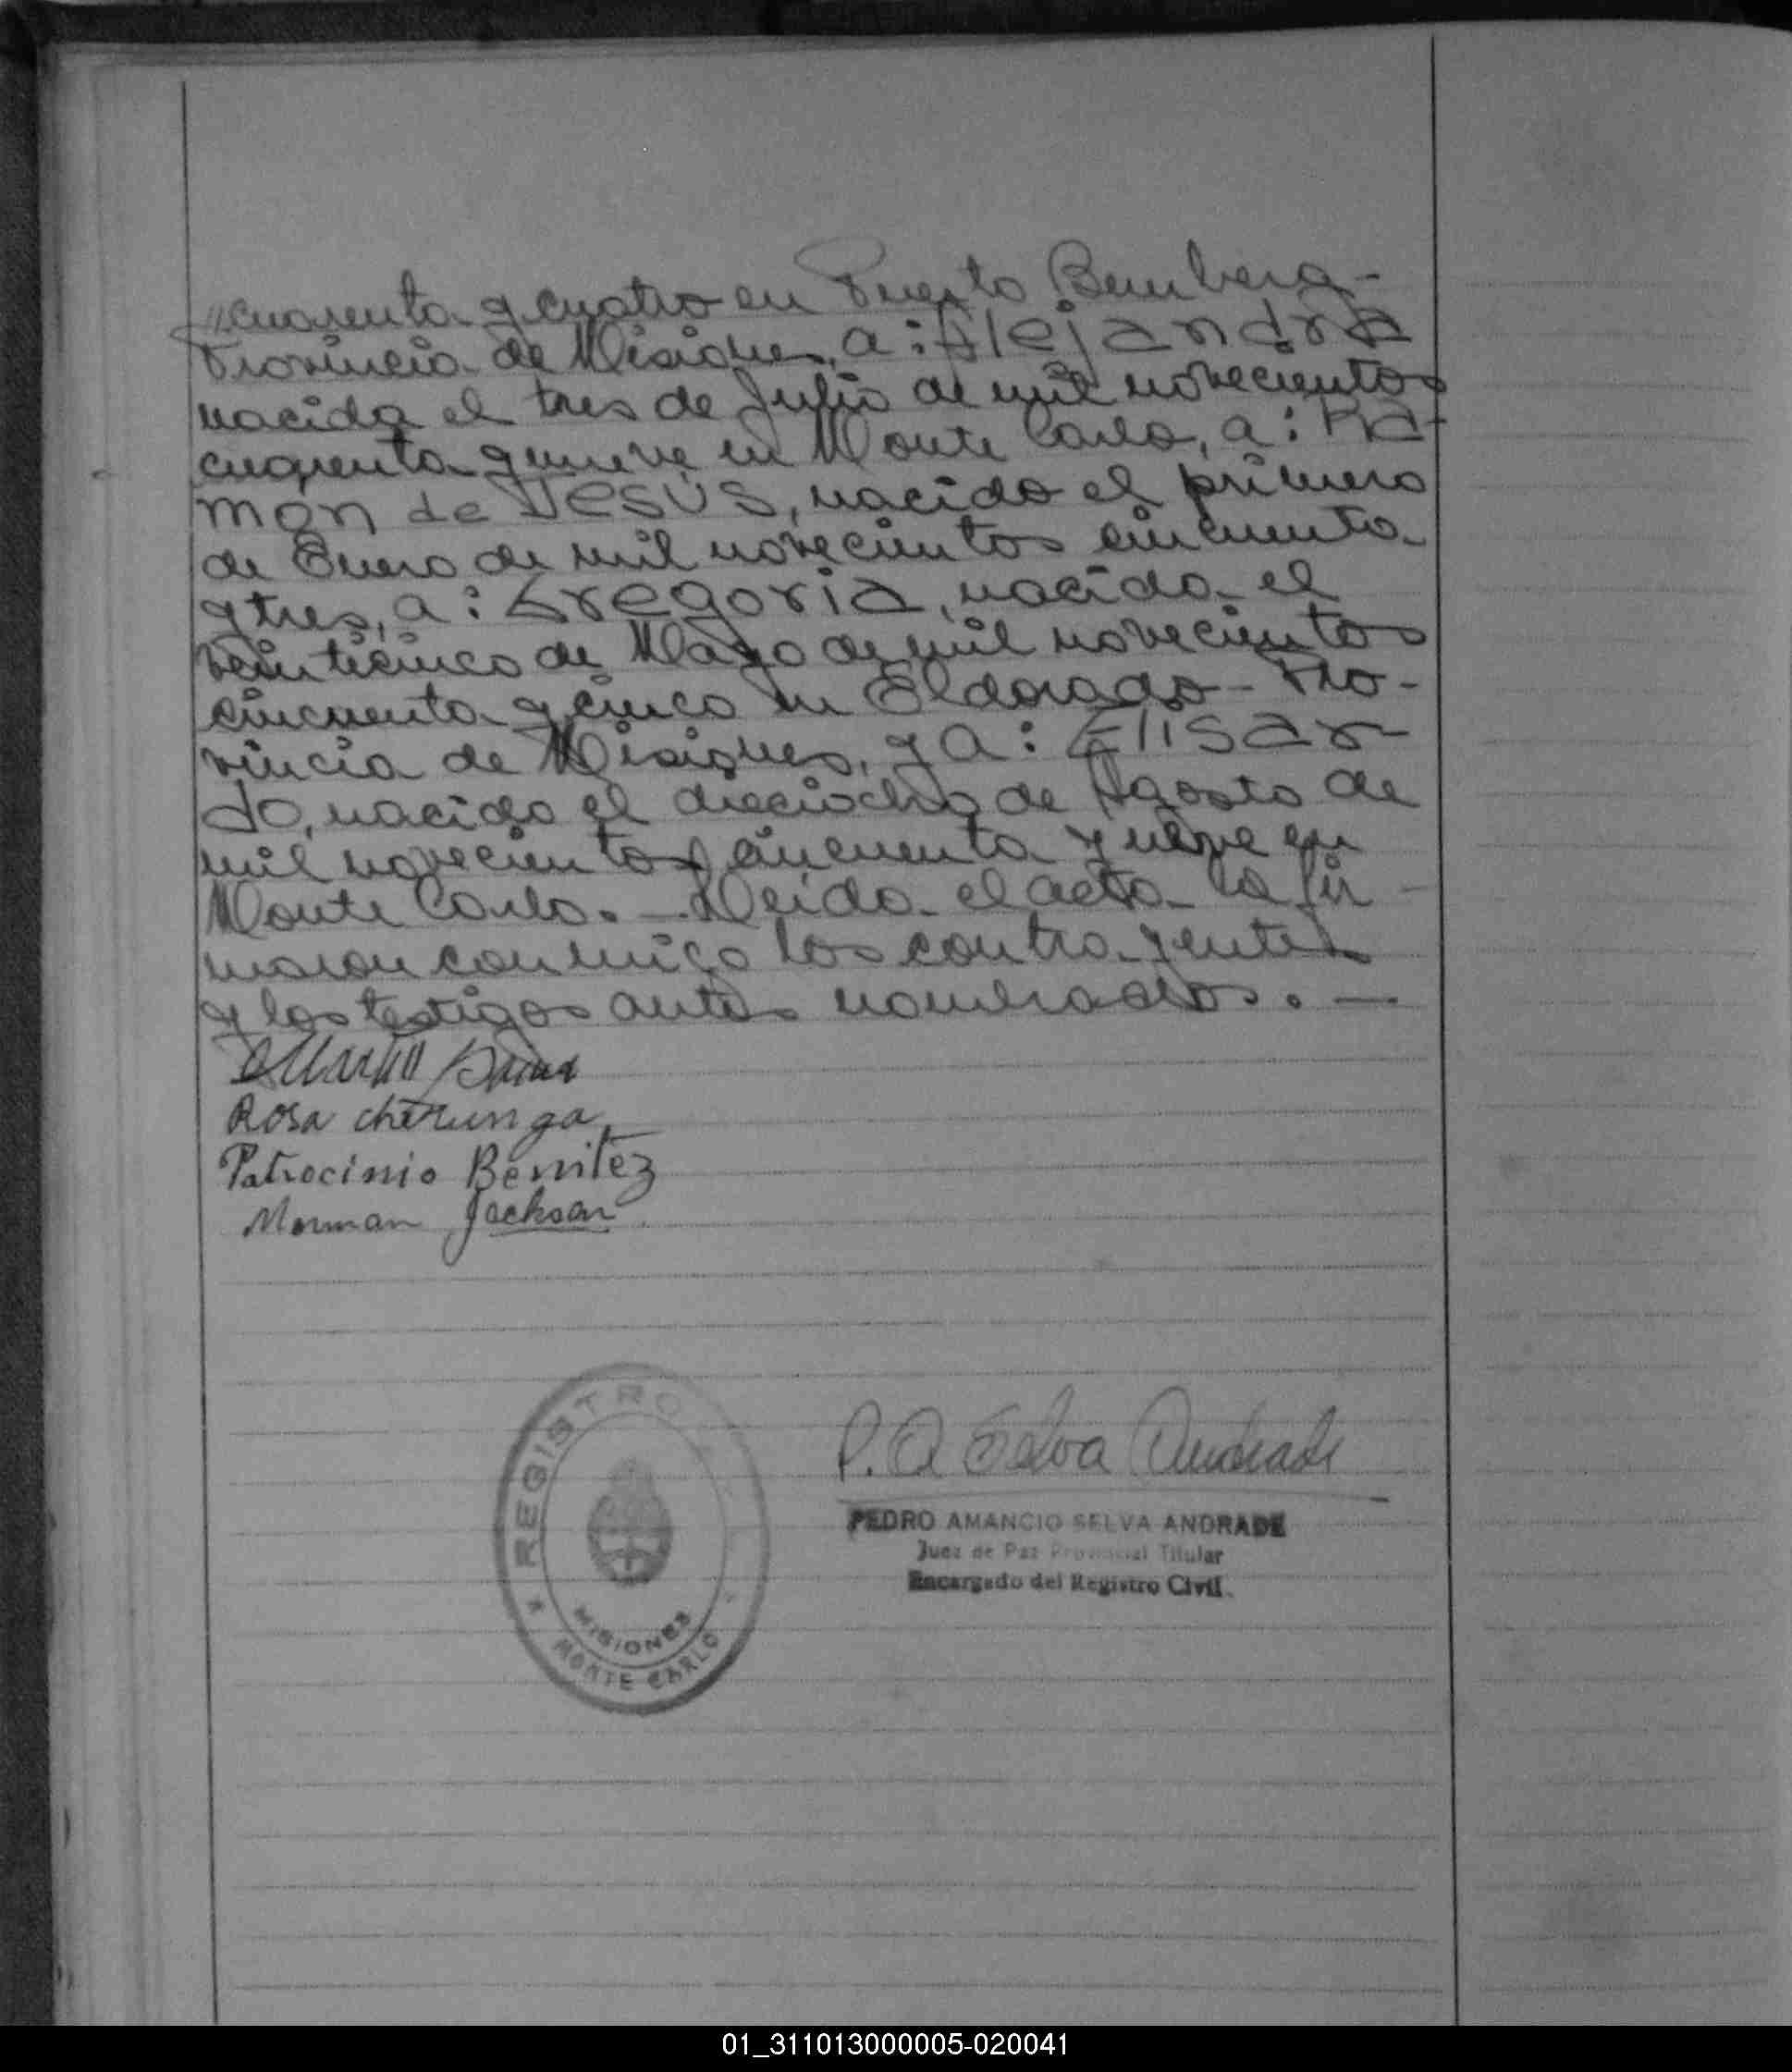 //cuarenta y cuatro en Puerto Bemberg-
Provincia de Misiones, a: Alejandra
nacida el tres de Julio de mil novecientos
cuarenta y nueve en Monte Carlo, a: Ra-
mon de Jesús, nacido el primero
de Enero de mil novecientos cincuenta
y tres, a: Gregoria, nacida el
veinticinco de Mayo de mil novecientos
cincuenta y cinco en Eldorado - Pro-
vincia de Misiones, y a: Elisar-
do, nacido el dieciocho de Agosto de
mil novecientos cincuenta y nueve en
Monte Carlo. — Leida el acta la fir-
maron conmigo los contrayentes
y los testigos antes nombrados. —
Rosa cherunga
Patrocinio Benitez
Norman Jackson
P. A Selva Andrade
PEDRO AMANCIO SELVA ANDRADE
Juez de Paz Provincial Titular
Encargado del Registro Civil.
REGISTRO
MISIONES
MONTE CARLO
01_311013000005-020041